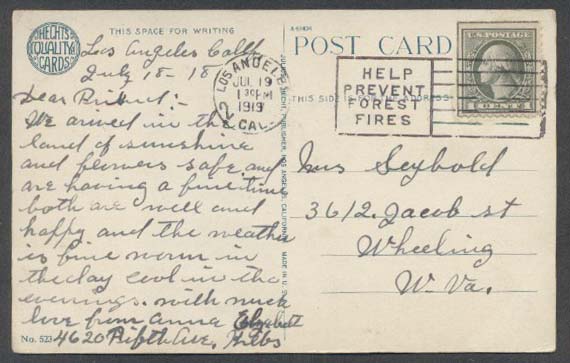 HECHTS
"QUALITY"
CARDS
THIS SPACE FOR WRITING
Los Angeles Calif
July 18-18
Dear :-
We arrived in the
land of sunshine
and flowers safe and
are having a fine time
both are well and
happy and the weather
is fine warm in
the day cool in the
evenings. with much
love from Anna Elizabeth
No. 523 4620 Fifth Ave.
POST CARD
LOS ANGELES
JUL 19
1 30 PM
1919
CAL.
2
HELP
PREVENT
FOREST
FIRES
U.S. POSTAGE
THIS SIDE IS FOR THE ADDRESS
PUBLISHER, LOS ANGELES, CALIFORNIA. MADE IN U.S.
Mrs Seybold
3612. Jacob st
Wheeling
W. Va.